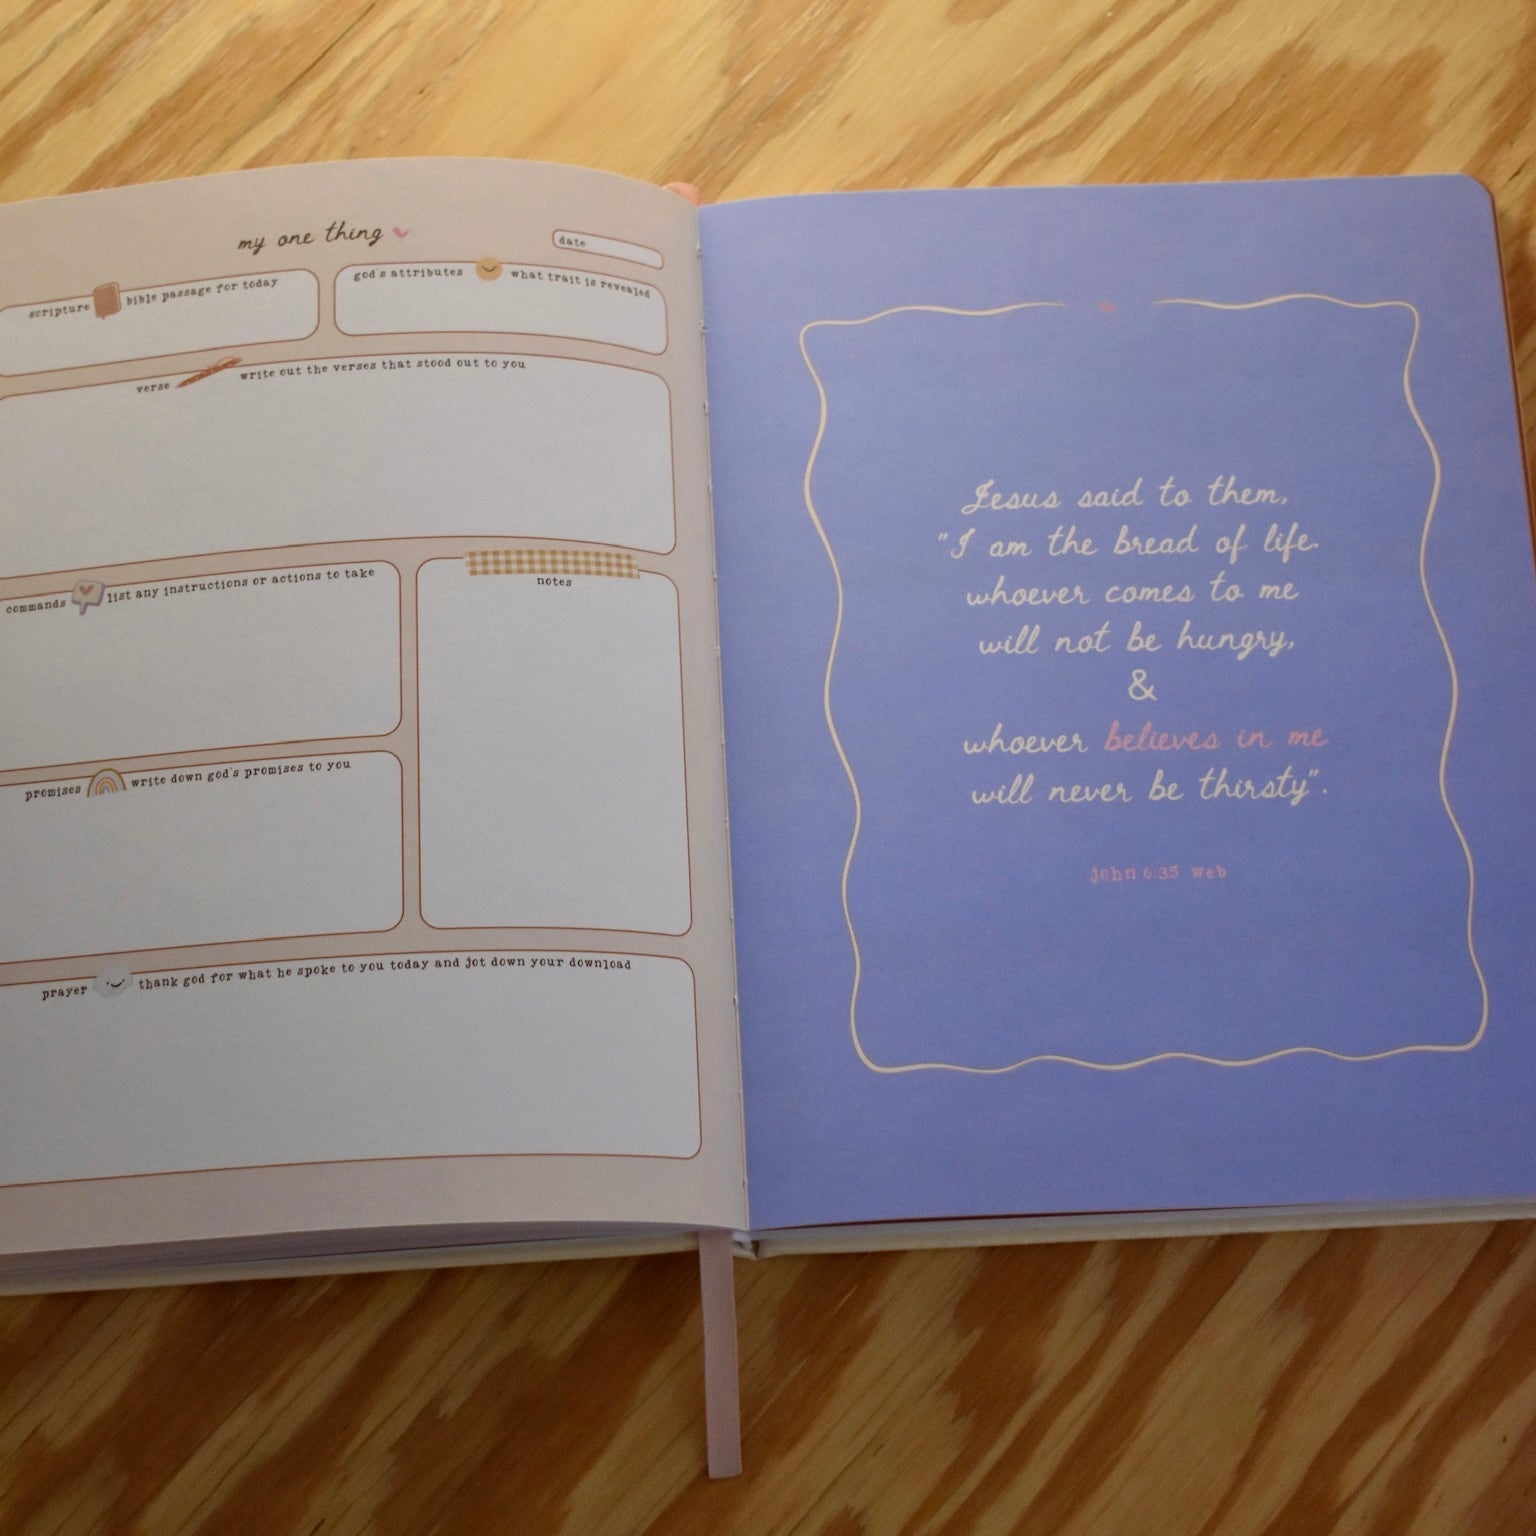 my one thing
date
scripture bible passage for today
god's attributes what trait is revealed
verse write out the verses that stood out to you
commands list any instructions or actions to take
notes
promises write down god's promises to you
prayer thank god for what he spoke to you today and jot down your download
Jesus said to them,
"I am the bread of life.
whoever comes to me
will not be hungry,
&
whoever believes in me
will never be thirsty".
john 6:35 web